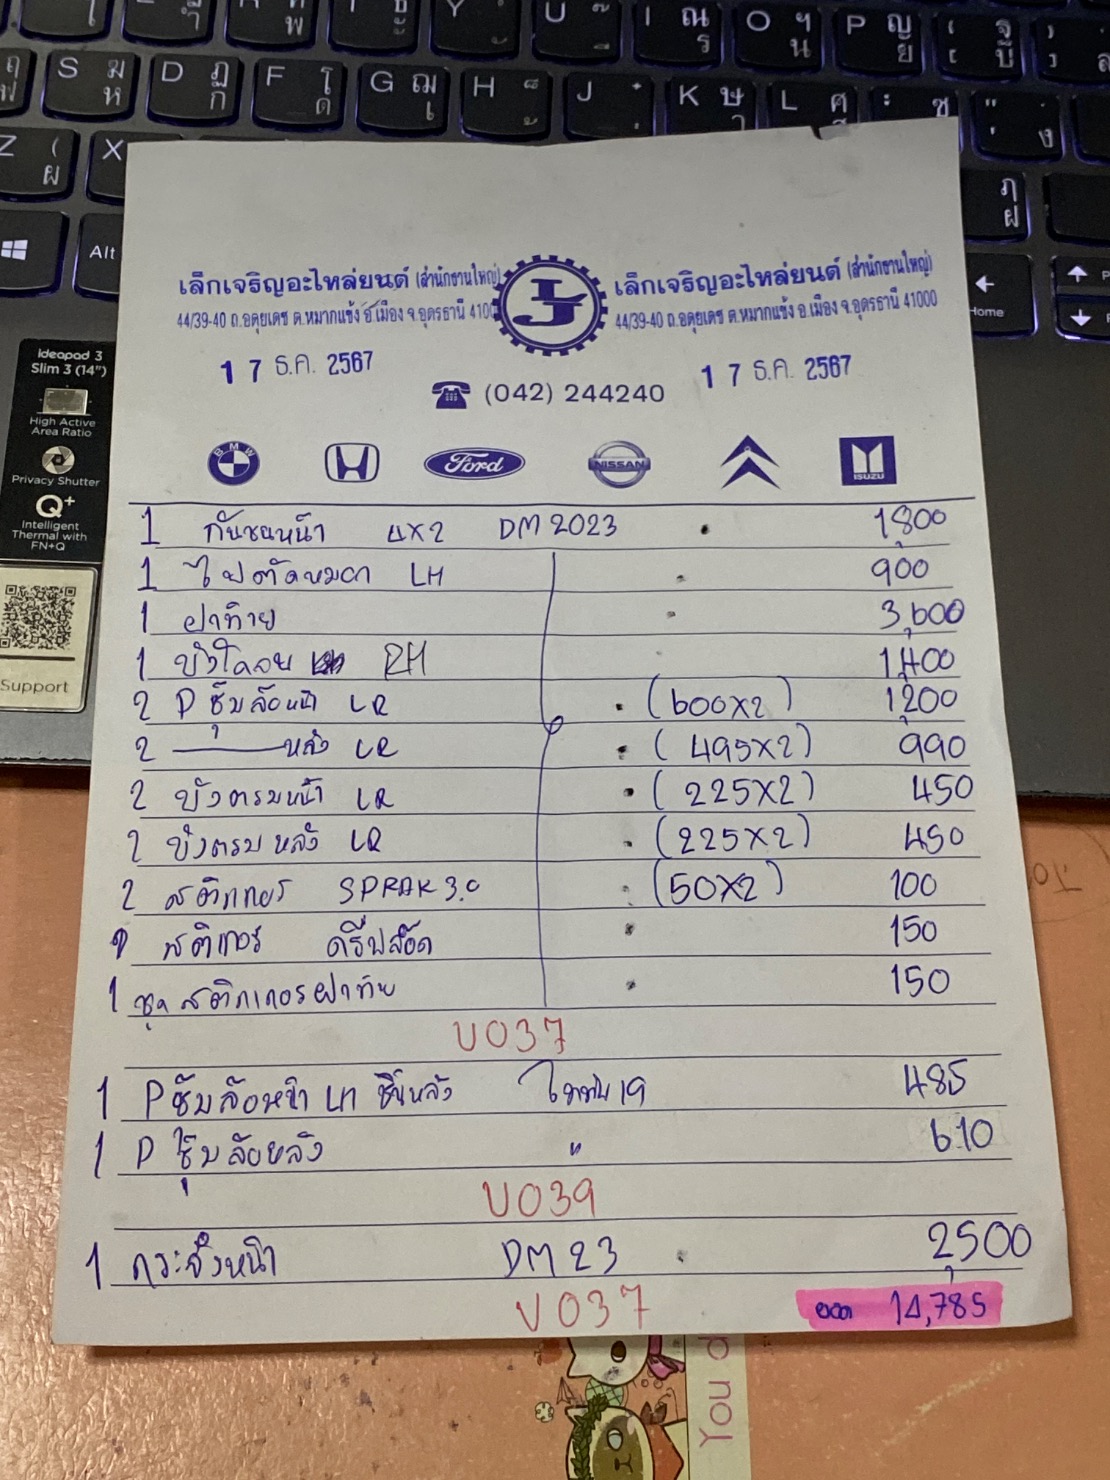 เล็กเจริญอะไหล่ยนต์ (สำนักงานใหญ่) เล็กเจริญอะไหล่ยนต์ (สำนักงานใหญ่)
44/39-40 ถ.อดุยเดช ต.หมากแข้ง อ.เมือง จ.อุดรธานี 4100 44/39-40 ถ.อดุยเดช ต.หมากแข้ง อ.เมือง จ.อุดรธานี 41000
1 7 ธ.ค. 2567 1 7 ธ.ค. 2567
(042) 244240
BMW Ford NISSAN ISUZU
1 กันชนหน้า 4x2 DM 2023 1,800
1 ไฟตัดหมอก LH 900
1 ฝาท้าย 3,600
1 บังโคลน RH 1,400
2 P ซุ้มล้อหน้า LR (600x2) 1,200
2 หลัง LR (495x2) 990
2 บังตรมหน้า LR (225x2) 450
2 บังตรมหลัง LR (225x2) 450
2 สติกเกอร์ (50x2) 100
สติกเกอร์ 150
1 ชุดสติกเกอร์ฝาท้าย 150
U037
1 P ซุ้มล้อหน้า ชิ้นหลัง 19 485
1 P ซุ้มล้อหลัง " 610
U039
1 กระจังหน้า DM 23 2,500
U037
14,785
Ideapad 3
Slim 3 (14")
High Active
Area Ratio
Privacy Shutter
Q+
Intelligent
Thermal with
FN+Q
Support
Alt
Home
You d